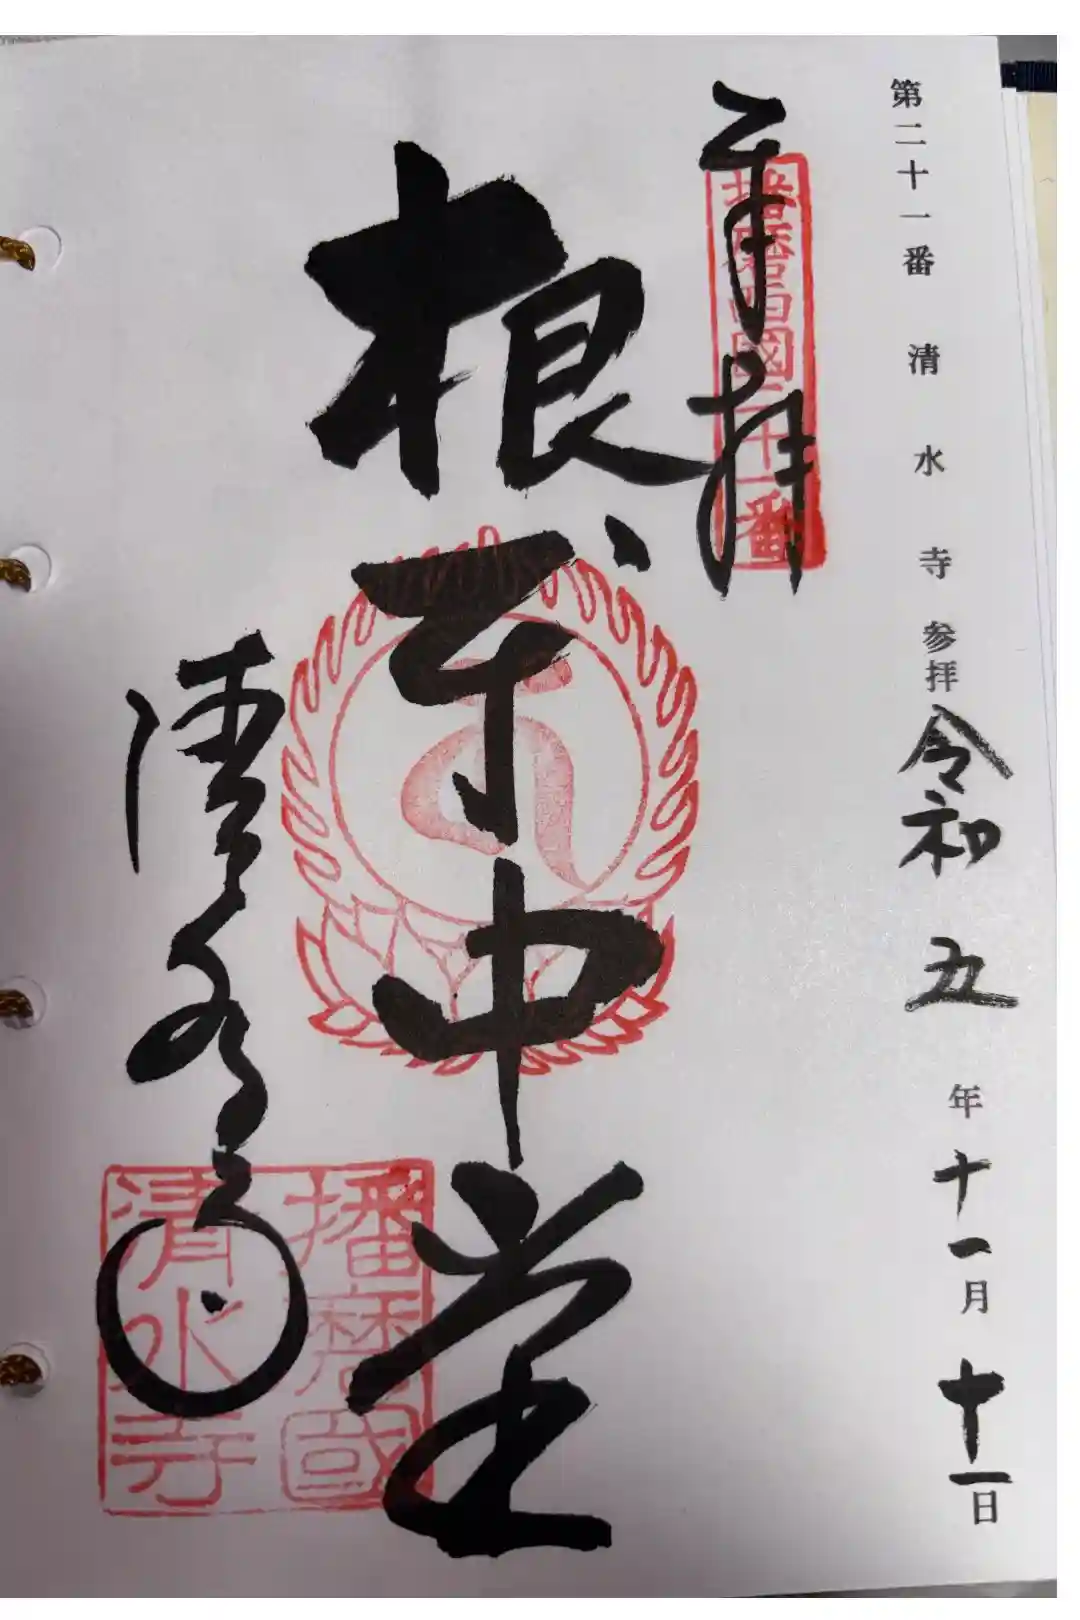 第二十一番 清水寺 参拝 令和五年十一月十一日
奉拝
播磨西國二十一番
根本中堂
清水寺
播磨國
清水寺